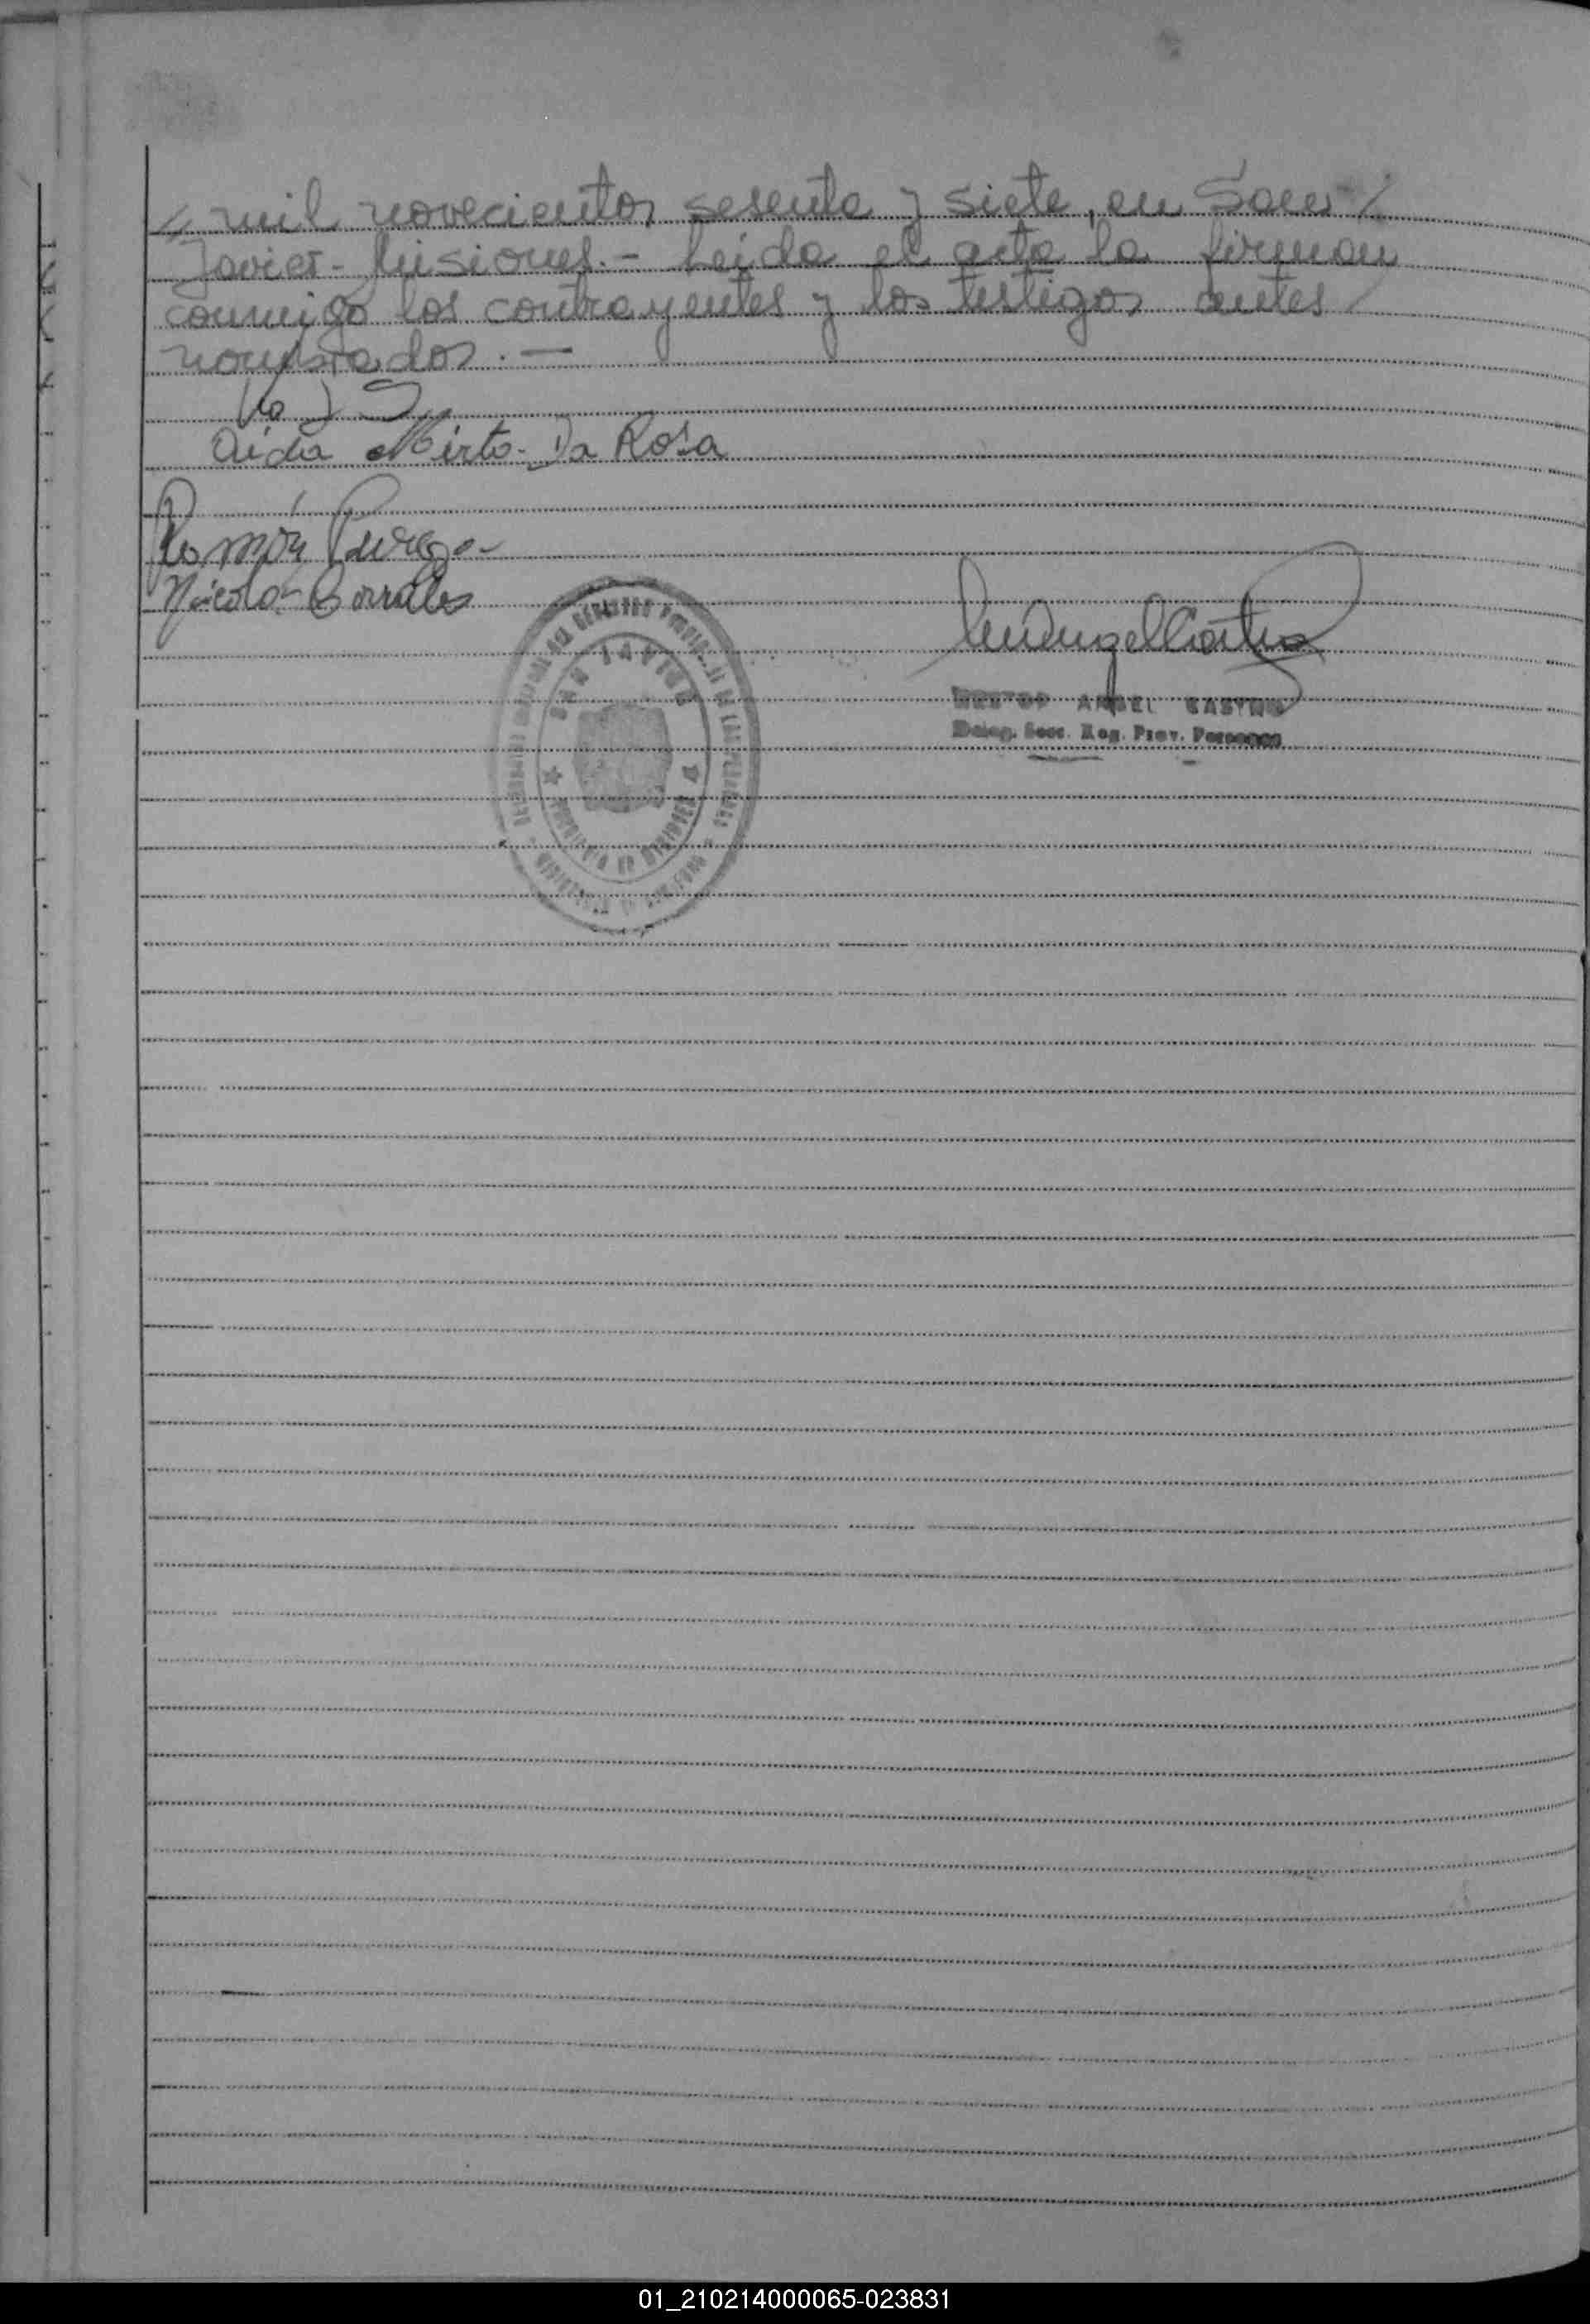 // mil novecientos sesenta y siete, en San /
Javier - Misiones. - Leída el acta la firman
conmigo los contrayentes y los testigos antes /
nombrados. —
Aida Mirta Da Rosa
Román
Nicolás Corrales
SAN JAVIER
PROVINCIA DE MISIONES
NESTOR ANGEL CASTRO
Deleg. Secc. Reg. Prov. Personas
01_210214000065-023831